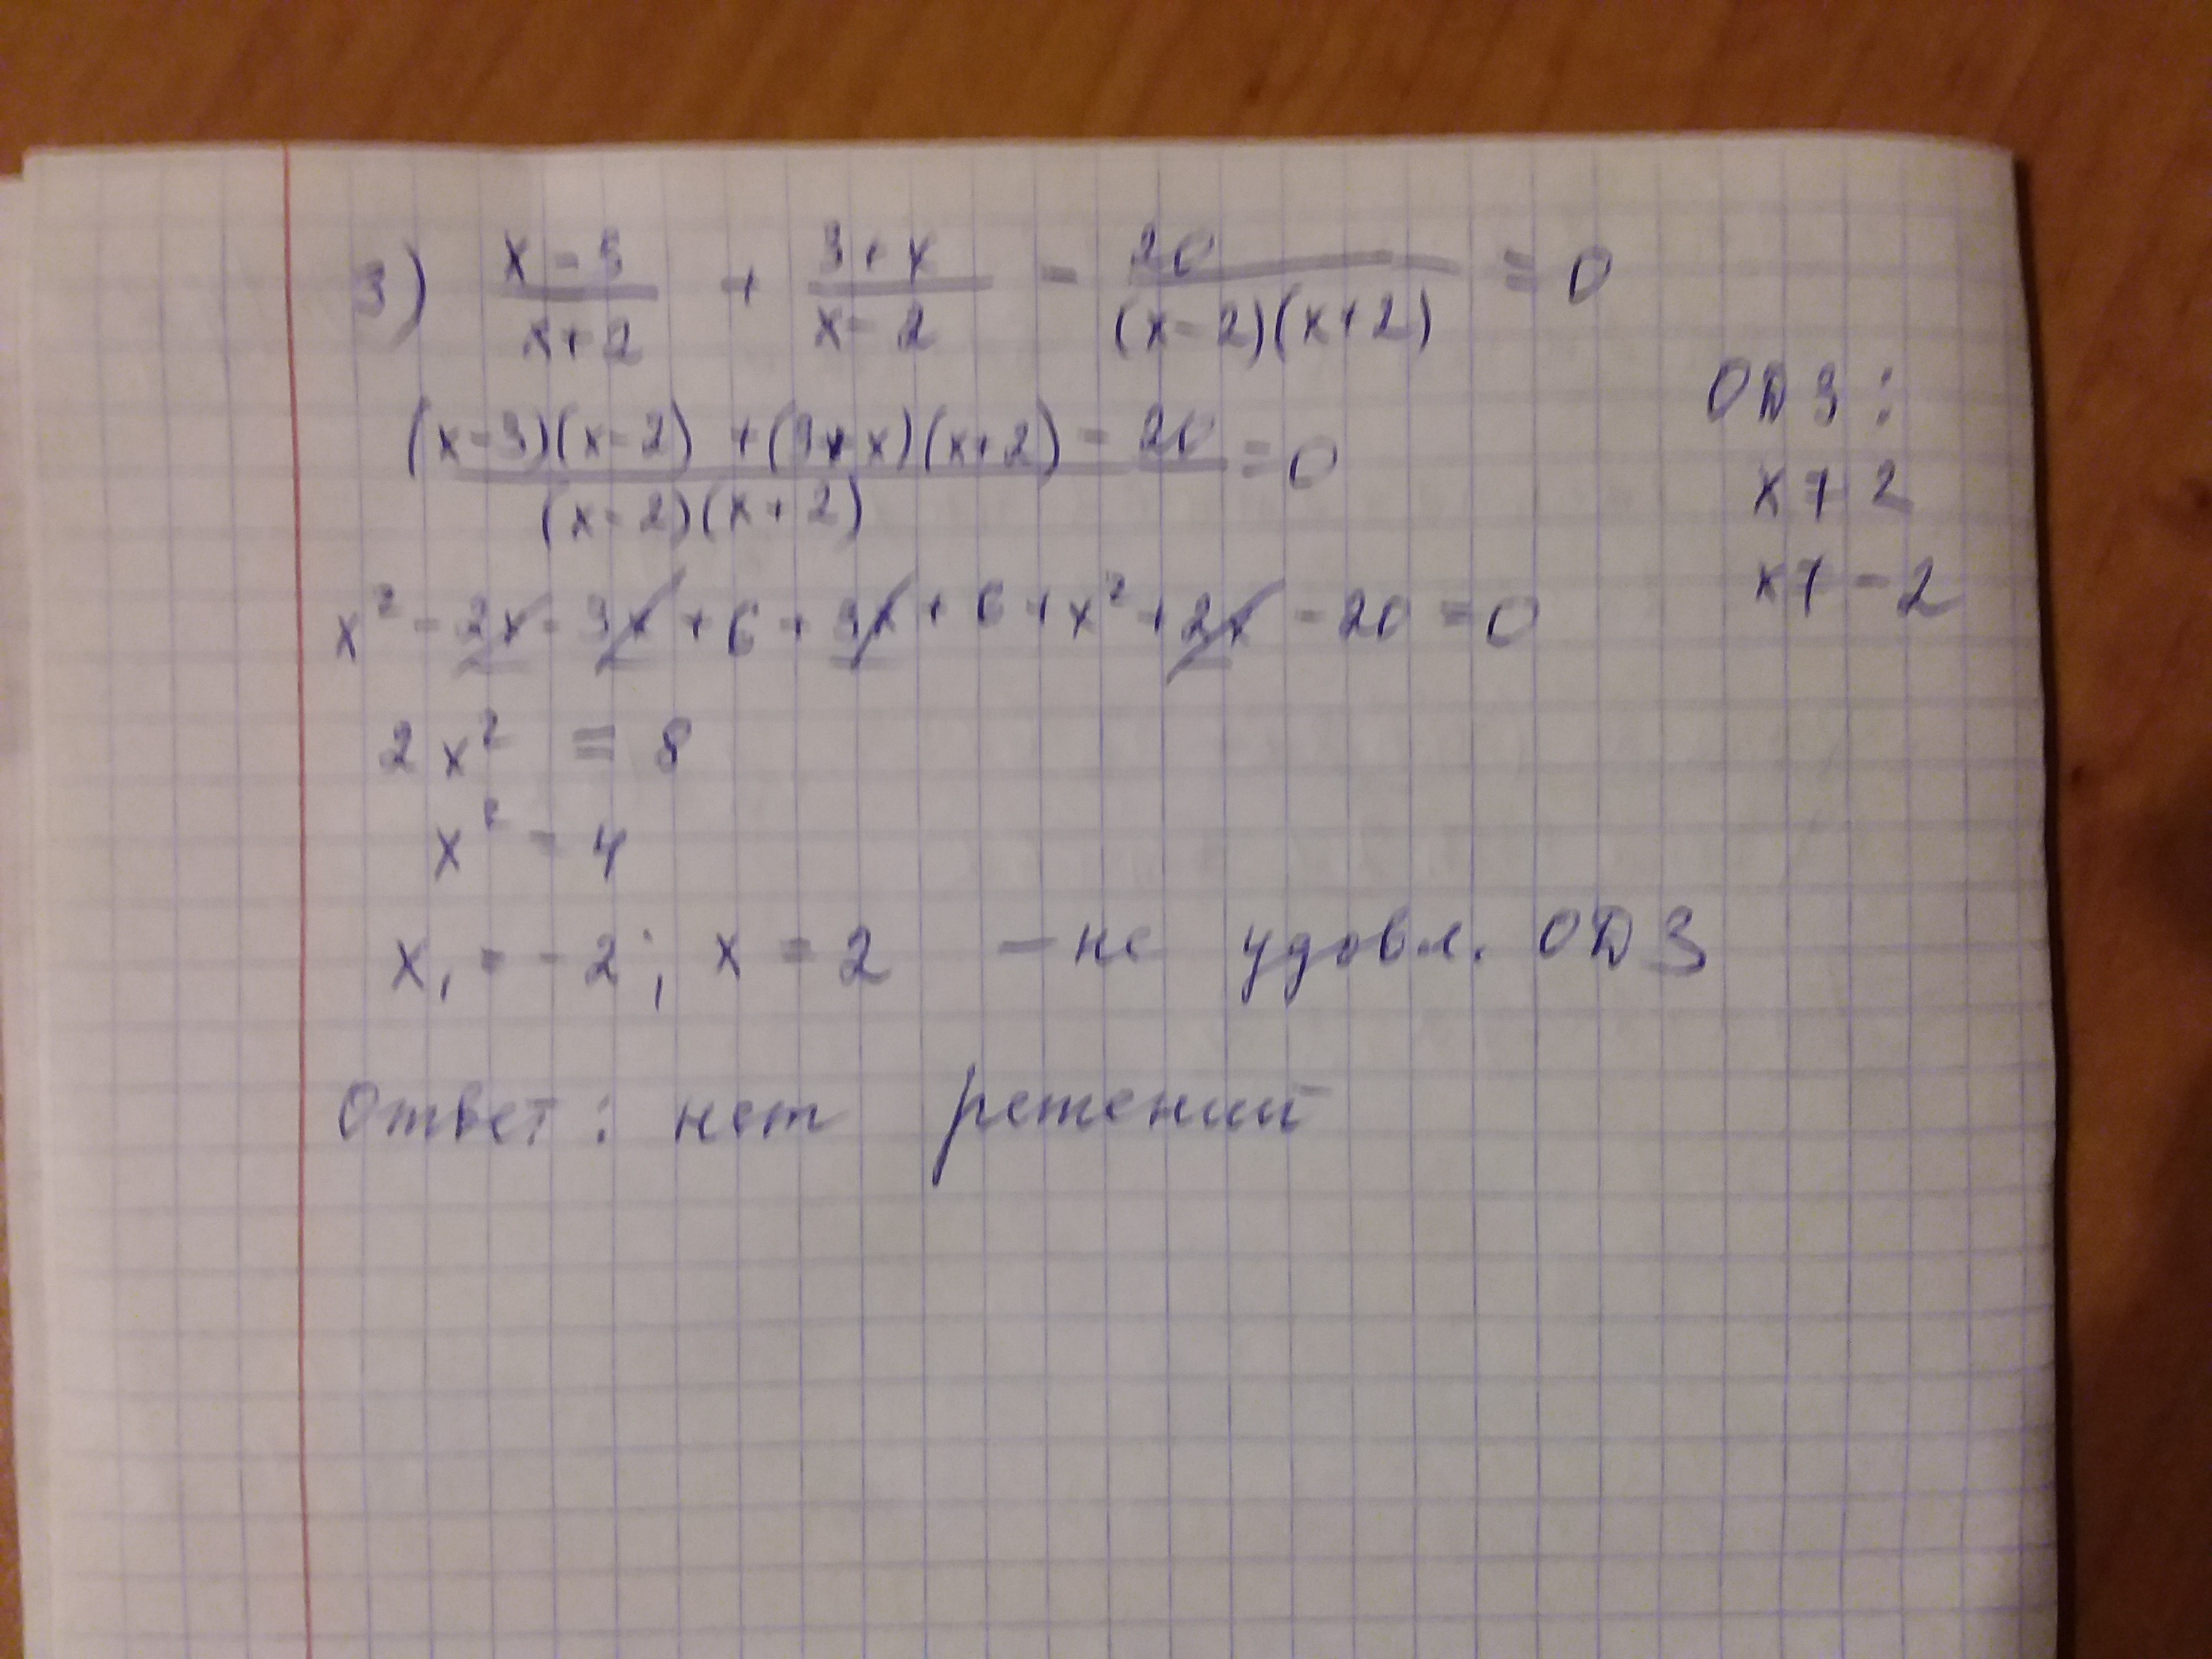 3) (x-3)/(x+2) + (3+x)/(x-2) - 20/((x-2)(x+2)) = 0
ОДЗ:
((x-3)(x-2) + (3+x)(x+2) - 20)/((x-2)(x+2)) = 0
x ≠ 2
x ≠ -2
x² - 2x - 3x + 6 + 3x + 6 + x² + 2x - 20 = 0
2x² = 8
x² = 4
x₁ = -2; x = 2 - не удовл. ОДЗ
Ответ: нет решений